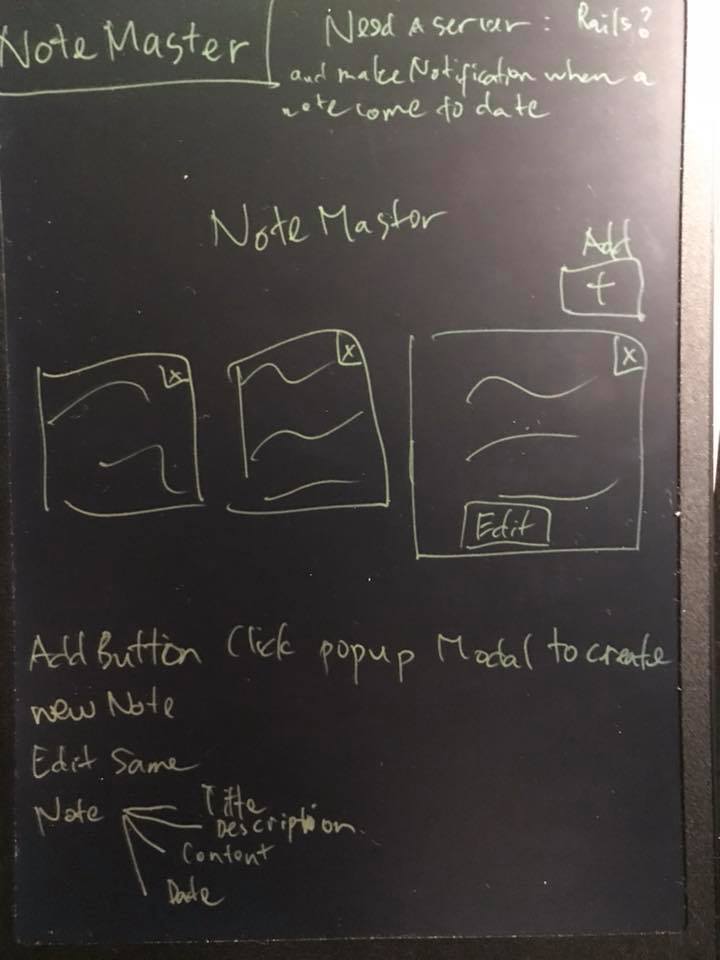 Note Master
Need a server: Rails?
and make Notification when a
note come to date
Note Master
Add
+
x
x
x
Edit
Add Button Click popup Modal to create
new Note
Edit Same
Note
Title
Description
Content
Date